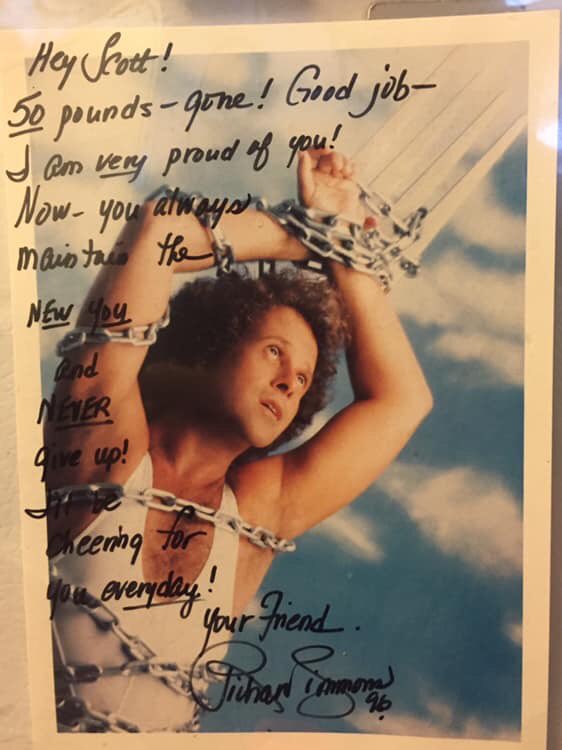 Hey Scott!
50 pounds - gone! Good job -
I am very proud of you!
Now - you always
maintain the
NEW You
and
NEVER
give up!
I'll be
cheering for
you everyday!
Your Friend.
Richard Simmons
96